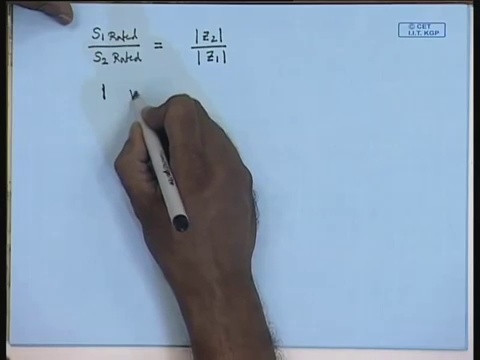 © CET
I.I.T. KGP
S1 Rated / S2 Rated = |Z2| / |Z1|
|